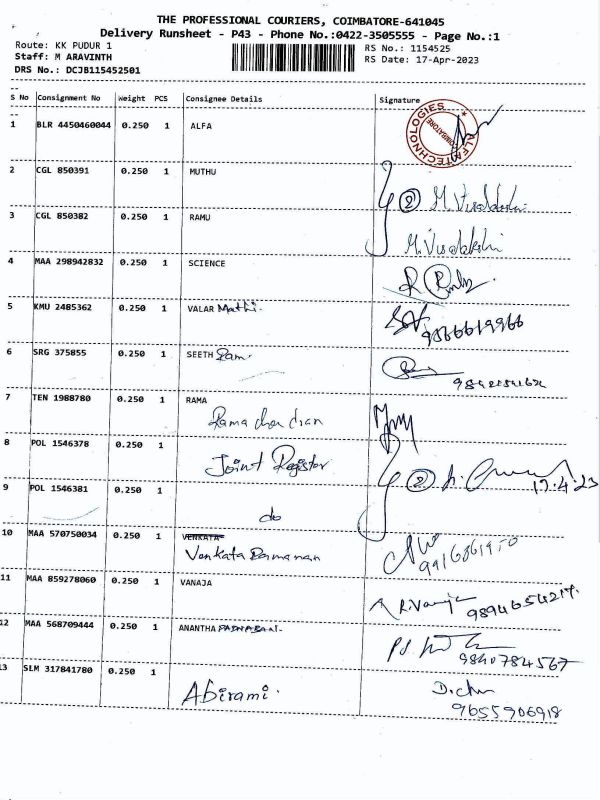 THE PROFESSIONAL COURIERS, COIMBATORE-641045
Delivery Runsheet - P43 - Phone No.:0422-3505555 - Page No.:1
Route: KK PUDUR 1
RS No.: 1154525
Staff: M ARAVINTH
RS Date: 17-Apr-2023
DRS No.: DCJB115452501
S No Consignment No Weight PCS Consignee Details Signature
1 BLR 4450460044 0.250 1 ALFA
ALFA TECHNOLOGIES
COIMBATORE
2 CGL 850391 0.250 1 MUTHU
2
3 CGL 850382 0.250 1 RAMU
4 MAA 298942832 0.250 1 SCIENCE
5 KMU 2485362 0.250 1 VALAR Mathi.
9866619966
6 SRG 375855 0.250 1 SEETH Ram.
7 TEN 1988780 0.250 1 RAMA
Rama chandran
8 POL 1546378 0.250 1
Joint Registor
2 17.4.23
9 POL 1546381 0.250 1
do
10 MAA 570750034 0.250 1 VENKATA
Venkata Ramanan
11 MAA 859278060 0.250 1 VANAJA
R.Vanaja 9894654217.
12 MAA 568709444 0.250 1 ANANTHA
9840784567
13 SLM 317841780 0.250 1
Abirami.
9655906918